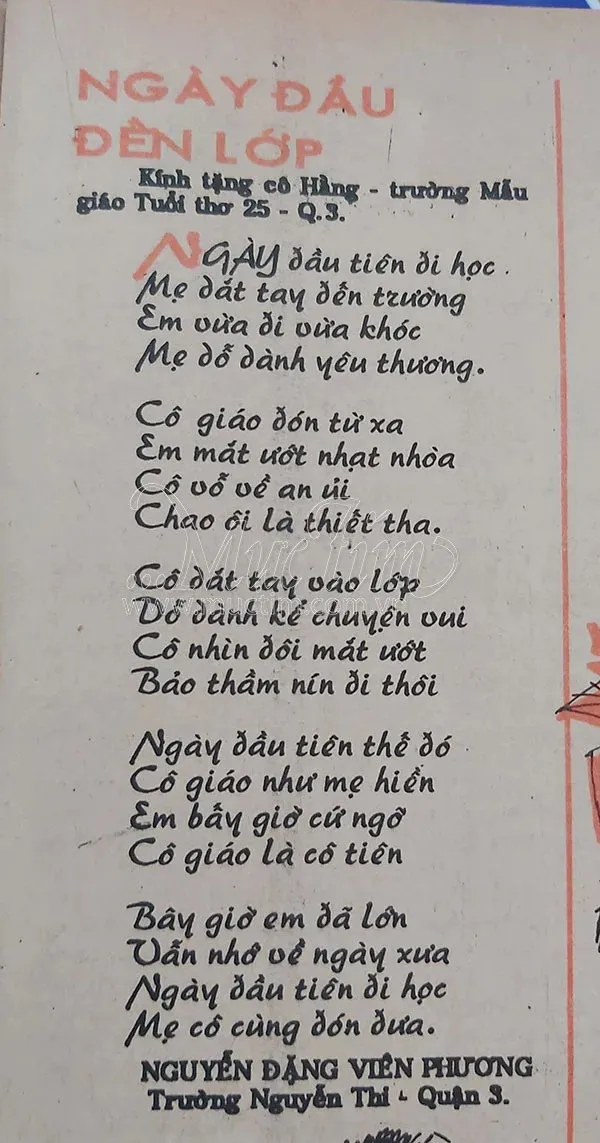 NGÀY ĐẦU
ĐẾN LỚP
Kính tặng cô Hằng - trường Mẫu
giáo Tuổi thơ 25 - Q.3.
NGÀY đầu tiên đi học.
Mẹ dắt tay đến trường
Em vừa đi vừa khóc
Mẹ dỗ dành yêu thương.
Cô giáo đón từ xa
Em mắt ướt nhạt nhòa
Cô vỗ về an ủi
Chao ôi là thiết tha.
Mực Tím
Cô dắt tay vào lớp
www.muctim.com.vn
Dỗ dành kể chuyện vui
Cô nhìn đôi mắt ướt
Bảo thầm nín đi thôi
Ngày đầu tiên thế đó
Cô giáo như mẹ hiền
Em bấy giờ cứ ngỡ
Cô giáo là cô tiên
Bây giờ em đã lớn
Vẫn nhớ về ngày xưa
Ngày đầu tiên đi học
Mẹ cô cùng đón đưa.
NGUYỄN ĐẶNG VIÊN PHƯƠNG
Trường Nguyễn Thi - Quận 3.